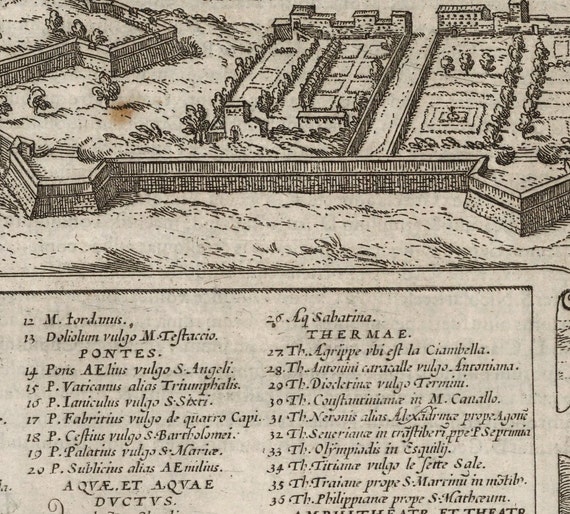 12 M. Iordanus.
13 Doliolum vulgo M. Testaccio.
PONTES.
14 Pons AElius vulgo S. Angeli.
15 P. Vaticanus alias Triumphalis.
16 P. Ianiculus vulgo S. Sixti.
17 P. Fabritius vulgo de quatro Capi.
18 P. Cestius vulgo S. Bartholomei.
19 P. Palatius vulgo S. Mariæ.
20 P. Sublicius alias AEmilius.
AQVÆ. ET AQVAE
DVCTVS.
26 Æq Sabatina.
THERMAE.
27 Th. Agrippe vbi est la Ciambella.
28 Th. Antonini caracalle vulgo Antoniana.
29 Th. Diocletinæ vulgo Termini.
30 Th. Constantinianæ in M. Cauallo.
31 Th. Neronis alias Alexādrinæ prope Agonē
32 Th. Seuerianæ in trāstiberī ꝓpe P. Septimia
33 Th. Olympiadis in Esquilijs
34 Th. Titianæ vulgo le sette Sale.
35 Th. Traianæ prope S. Martinū in mōtib.
36 Th. Philippianæ prope S. Mathæum.
AMPHITHEATR. ET THEATR.